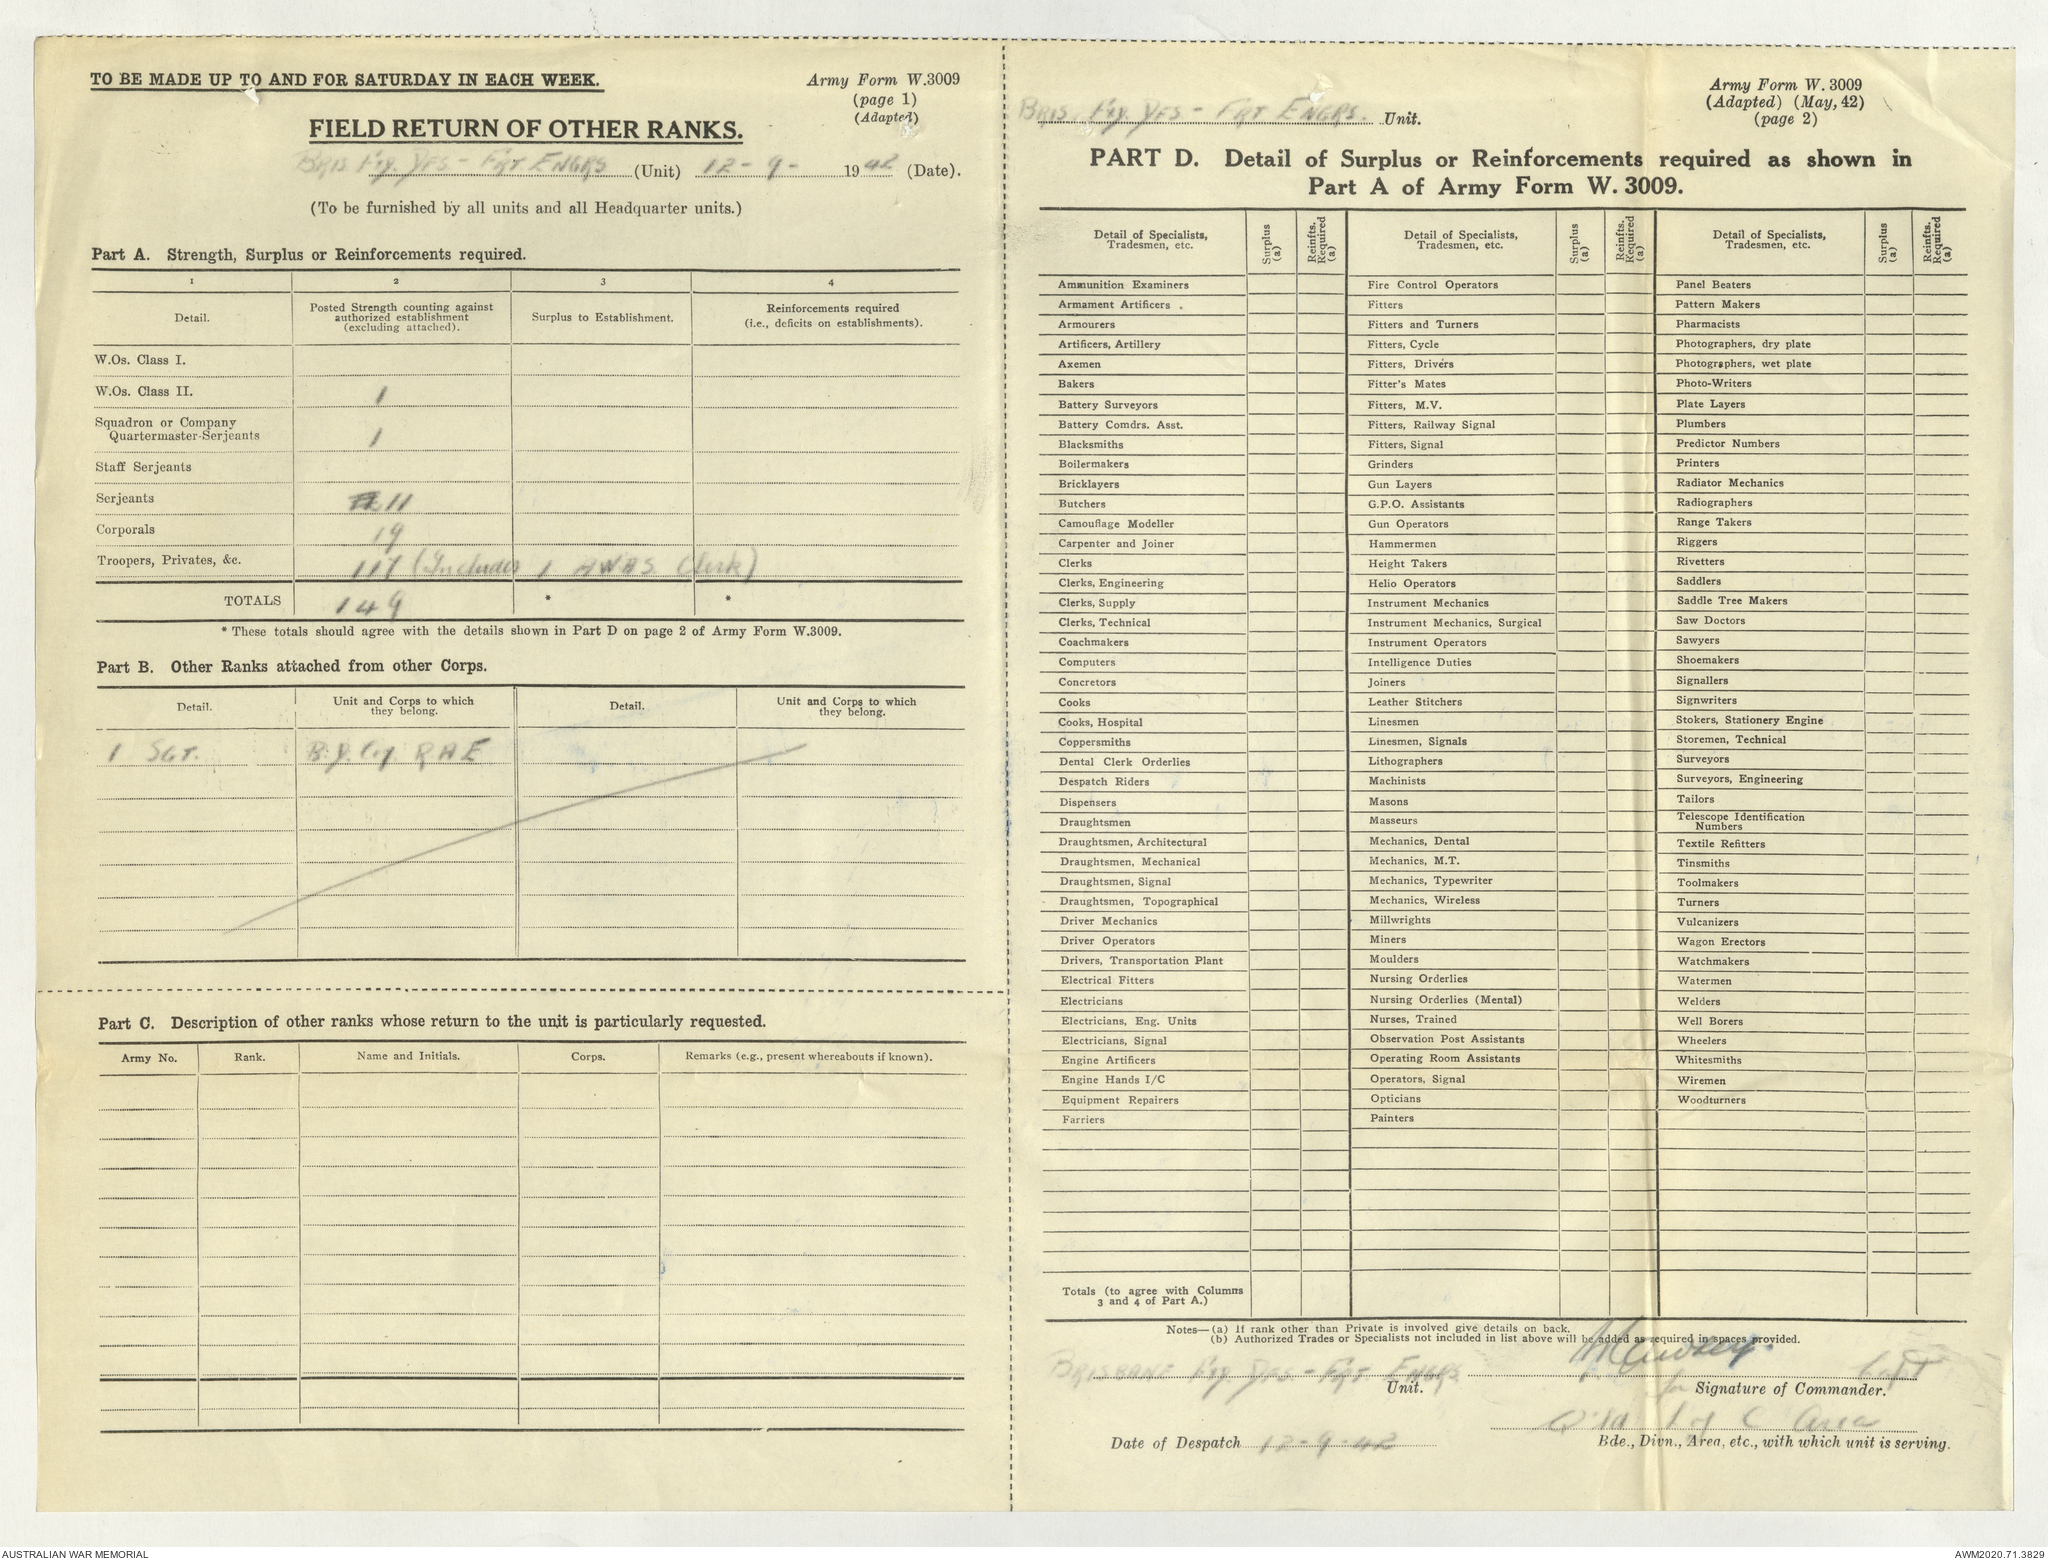 TO BE MADE UP TO AND FOR SATURDAY IN EACH WEEK.
Army Form W.3009
(page 1)
(Adapted)
FIELD RETURN OF OTHER RANKS.
BRIS Fxd. Dfs - FRT ENGRS (Unit) 12-9- 1942 (Date).
(To be furnished by all units and all Headquarter units.)
Part A. Strength, Surplus or Reinforcements required.
1 2 3 4
Detail. Posted Strength counting against authorized establishment (excluding attached). Surplus to Establishment. Reinforcements required (i.e., deficits on establishments).
W.Os. Class I.
W.Os. Class II. 1
Squadron or Company
Quartermaster-Serjeants 1
Staff Serjeants
Serjeants 11
Corporals 19
Troopers, Privates, &c. 117 (Includes 1 AWAS Clerk)
TOTALS 149 * *
* These totals should agree with the details shown in Part D on page 2 of Army Form W.3009.
Part B. Other Ranks attached from other Corps.
Detail. Unit and Corps to which they belong. Detail. Unit and Corps to which they belong.
1 SGT. RAE
Part C. Description of other ranks whose return to the unit is particularly requested.
Army No. Rank. Name and Initials. Corps. Remarks (e.g., present whereabouts if known).
Army Form W. 3009
(Adapted) (May, 42)
(page 2)
BRIS. Fxd. Dfs - FRT ENGRS. Unit.
PART D. Detail of Surplus or Reinforcements required as shown in
Part A of Army Form W. 3009.
Detail of Specialists, Tradesmen, etc. Surplus (a) Reinfts. Required (a) Detail of Specialists, Tradesmen, etc. Surplus (a) Reinfts. Required (a) Detail of Specialists, Tradesmen, etc. Surplus (a) Reinfts. Required (a)
Ammunition Examiners Fire Control Operators Panel Beaters
Armament Artificers Fitters Pattern Makers
Armourers Fitters and Turners Pharmacists
Artificers, Artillery Fitters, Cycle Photographers, dry plate
Axemen Fitters, Drivers Photographers, wet plate
Bakers Fitter's Mates Photo-Writers
Battery Surveyors Fitters, M.V. Plate Layers
Battery Comdrs. Asst. Fitters, Railway Signal Plumbers
Blacksmiths Fitters, Signal Predictor Numbers
Boilermakers Grinders Printers
Bricklayers Gun Layers Radiator Mechanics
Butchers G.P.O. Assistants Radiographers
Camouflage Modeller Gun Operators Range Takers
Carpenter and Joiner Hammermen Riggers
Clerks Height Takers Rivetters
Clerks, Engineering Helio Operators Saddlers
Clerks, Supply Instrument Mechanics Saddle Tree Makers
Clerks, Technical Instrument Mechanics, Surgical Saw Doctors
Coachmakers Instrument Operators Sawyers
Computers Intelligence Duties Shoemakers
Concretors Joiners Signallers
Cooks Leather Stitchers Signwriters
Cooks, Hospital Linesmen Stokers, Stationery Engine
Coppersmiths Linesmen, Signals Storemen, Technical
Dental Clerk Orderlies Lithographers Surveyors
Despatch Riders Machinists Surveyors, Engineering
Dispensers Masons Tailors
Draughtsmen Masseurs Telescope Identification Numbers
Draughtsmen, Architectural Mechanics, Dental Textile Refitters
Draughtsmen, Mechanical Mechanics, M.T. Tinsmiths
Draughtsmen, Signal Mechanics, Typewriter Toolmakers
Draughtsmen, Topographical Mechanics, Wireless Turners
Driver Mechanics Millwrights Vulcanizers
Driver Operators Miners Wagon Erectors
Drivers, Transportation Plant Moulders Watchmakers
Electrical Fitters Nursing Orderlies Watermen
Electricians Nursing Orderlies (Mental) Welders
Electricians, Eng. Units Nurses, Trained Well Borers
Electricians, Signal Observation Post Assistants Wheelers
Engine Artificers Operating Room Assistants Whitesmiths
Engine Hands I/C Operators, Signal Wiremen
Equipment Repairers Opticians Woodturners
Farriers Painters
Totals (to agree with Columns
3 and 4 of Part A.)
Notes—(a) If rank other than Private is involved give details on back.
(b) Authorized Trades or Specialists not included in list above will be added as required in spaces provided.
BRISBANE Fxd. Dfs. - FRT. ENGRS. Unit.
Capt
for Signature of Commander.
Q'ld L of C Area
Date of Despatch 12-9-42
Bde., Divn., Area, etc., with which unit is serving.
AUSTRALIAN WAR MEMORIAL
AWM2020.71.3829